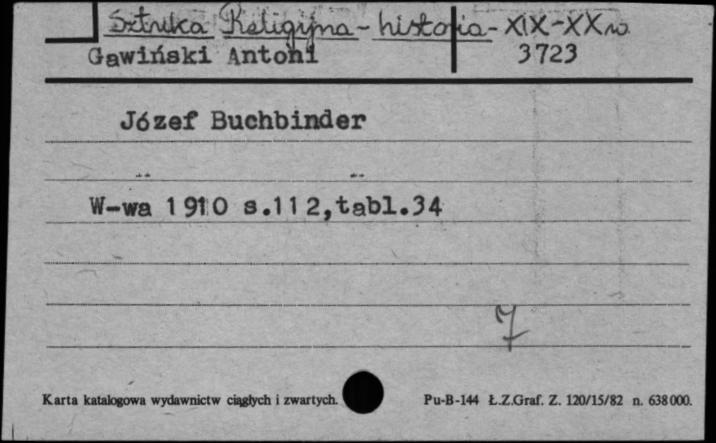 Sztuka Religijna - historia - XIX-XX w.
Gawiński Antoni 3723
Józef Buchbinder
W-wa 1910 s.112,tabl.34
7
Karta katalogowa wydawnictw ciągłych i zwartych. Pu-B-144 Ł.Z.Graf. Z. 120/15/82 n. 638000.